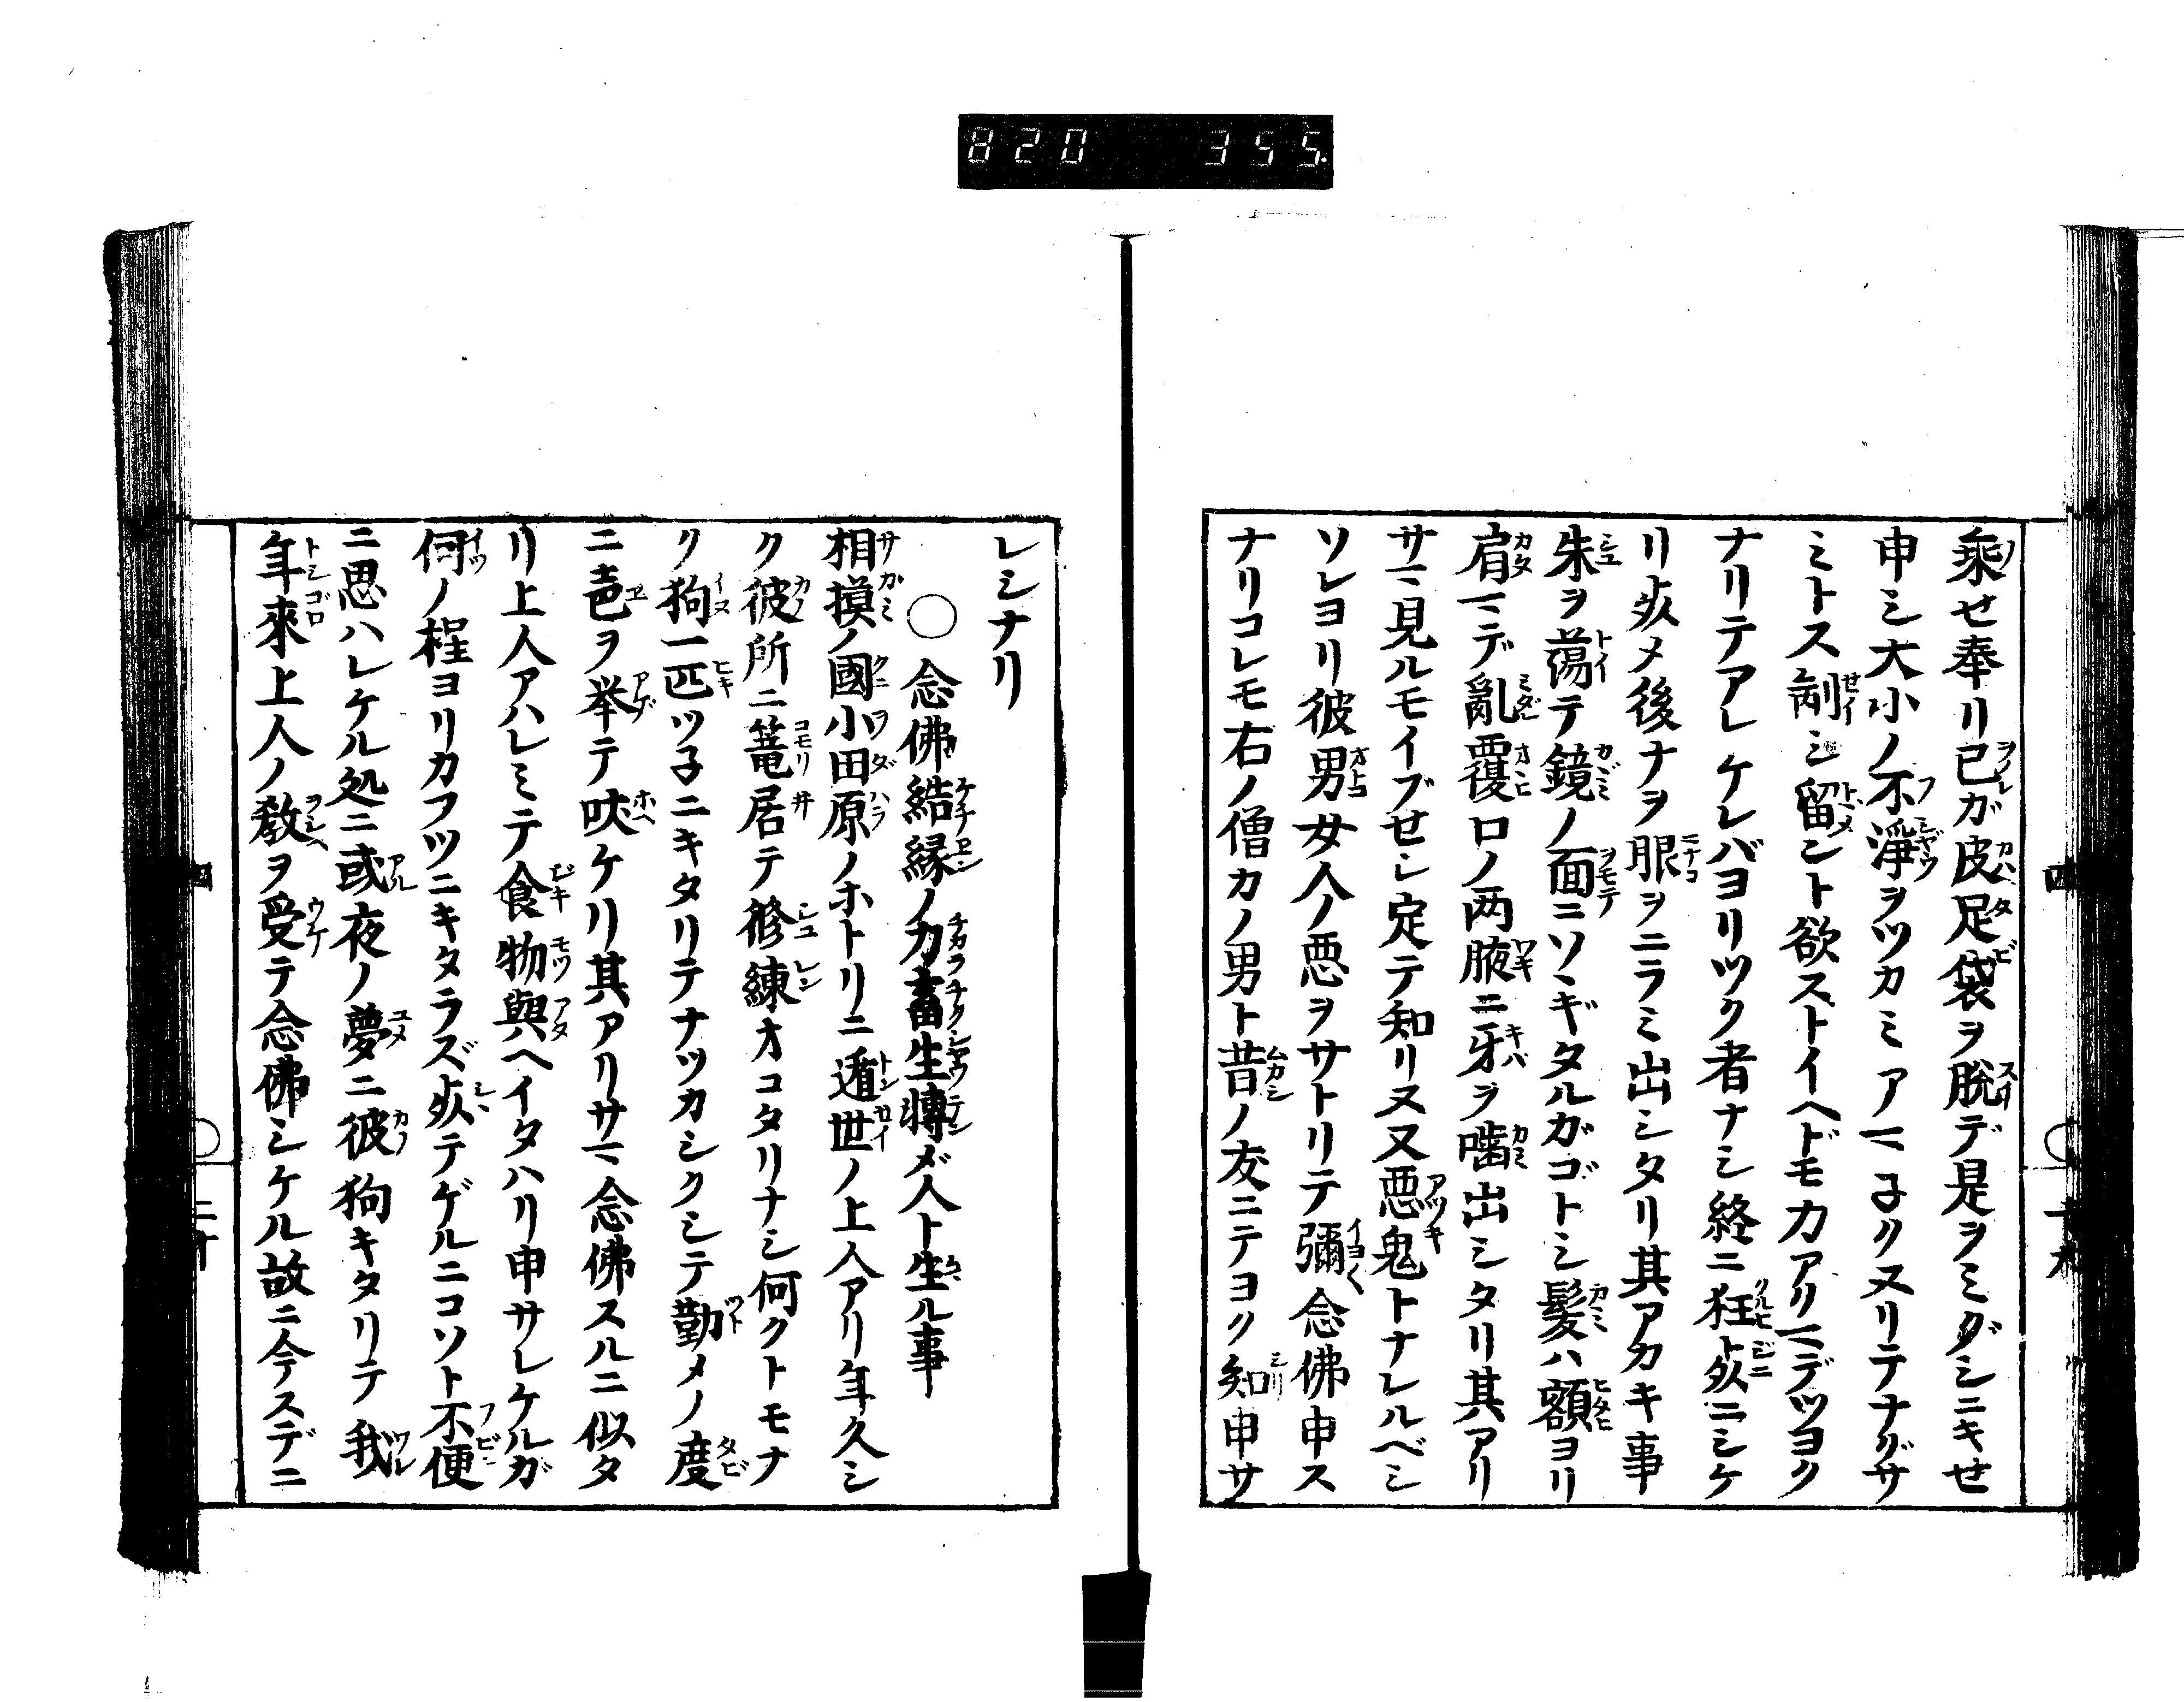 820 355
乗せ奉リ已ガ皮足袋ヲ脱デ是ヲミダシニキせ
申シ大小ノ不淨ヲツカミアマ子クヌリテナグサ
ミトス制シ留ント欲ストイヘドモ力アリマデツヨク
ナリテアレケレバヨリツク者ナシ終ニ狂ト死ニシケ
リ死メ後ナヲ眼ヲニラミ出シタリ其アカキ事
朱ヲ蕩テ鏡ノ面ニソヽギタルガゴトシ髪ハ額ヨリ
肩マデ亂覆ロノ两腋ニ牙ヲ噛出シタリ其アリ
サマ見ルモイブせシ定テ知リヌ又悪鬼トナレルベシ
ソレヨリ彼男女人ノ悪ヲサトリテ彌念佛申ス
ナリコレモ右ノ僧カノ男ト昔ノ友ニテヨク知申サ
レシナリ
○念佛結縁ノ力畜生轉メ人ト生ル事
相摸ノ國小田原ノホトリニ遁世ノ上人アリ年久シ
ク彼所ニ篭居テ修練オコタリナシ何クトモナ
ク狗一匹ツ子ニキタリテナツカシクシテ勤メノ度
ニ㐌ヲ挙テ吠ケリ其アリサマ念佛スルニ似タ
リ上人アハレミテ食物與ヘイタハリ申サレケルガ
何ノ程ヨリカフツニキタラズ死テゲルニコソト不便
ニ思ハレケル処ニ或夜ノ夢ニ彼狗キタリテ我
年來上人ノ教ヲ受テ念佛シケル故ニ今スデニ